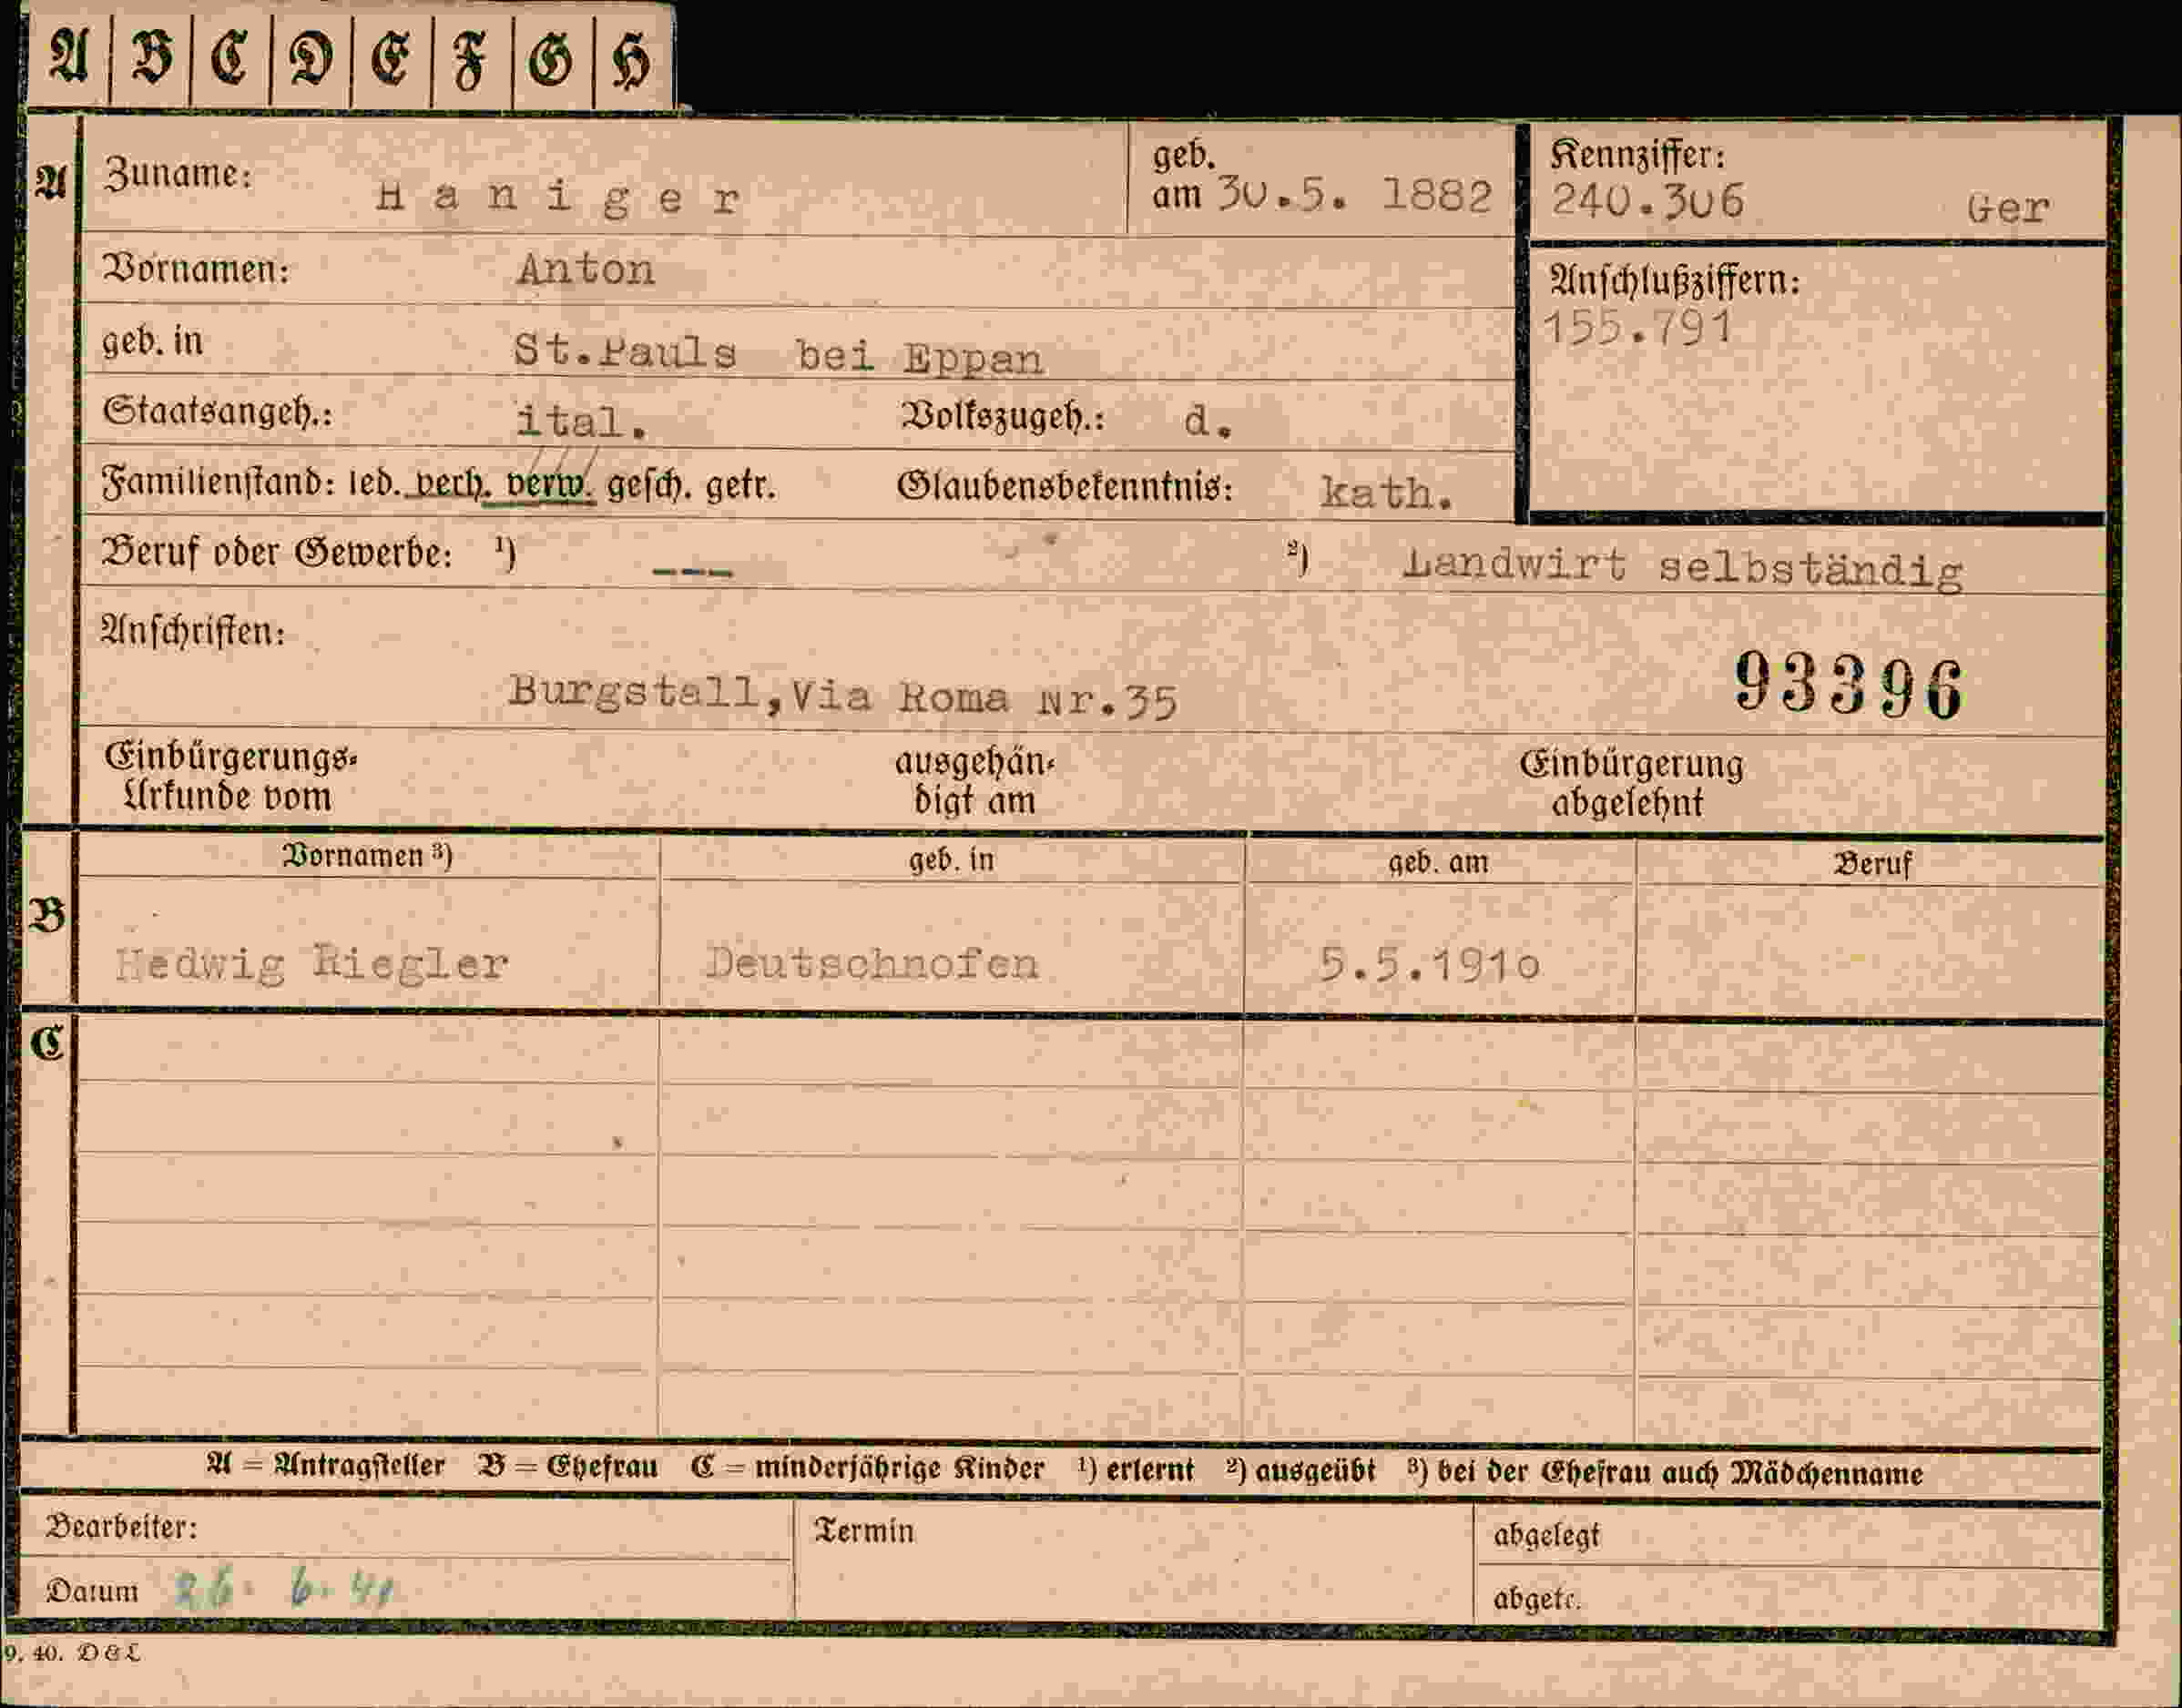 A B C D E F G H
A Zuname: Haniger geb. am 30.5. 1882 Kennziffer: 240.306 Ger
Vornamen: Anton Anschlußziffern:
155.791
geb. in St.Pauls bei Eppan
Staatsangeh.: ital. Volkszugeh.: d.
Familienstand: led. verh. verw. gesch. getr. Glaubensbekenntnis: kath.
Beruf oder Gewerbe: ¹) --- ²) Landwirt selbständig
Anschriften:
Burgstall,Via Roma Nr.35 93396
Einbürgerungs- Urkunde vom ausgehän- digt am Einbürgerung abgelehnt
Vornamen ³) geb. in geb. am Beruf
B Hedwig Riegler Deutschnofen 5.5.1910
C
A = Antragsteller B = Ehefrau C = minderjährige Kinder ¹) erlernt ²) ausgeübt ³) bei der Ehefrau auch Mädchenname
Bearbeiter: Termin abgelegt
Datum 26. 6. 41 abgetr.
9. 40. D&L